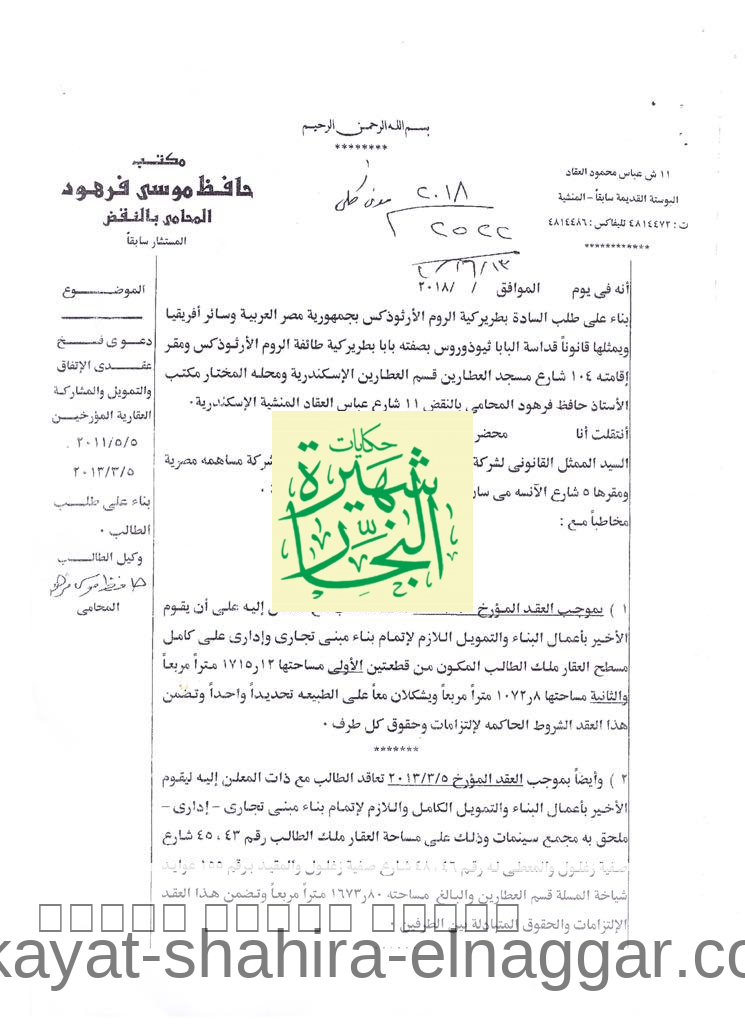 بسم الله الرحمن الرحيم
********
مكتب
حافظ موسى فرهود
المحامى بالنقض
المستشار سابقاً
١١ ش عباس محمود العقاد
البوستة القديمة سابقاً – المنشية
ت : ٤٨١٤٤٧٢ تليفاكس : ٤٨١٤٤٨٦
************
٢٠١٨
٢٥٢٢
مدنى كلى
أنه فى يوم الموافق / /٢٠١٨
بناء على طلب السادة بطريركية الروم الأرثوذكس بجمهورية مصر العربية وسائر أفريقيا
ويمثلها قانوناً قداسة البابا ثيوذوروس بصفته بابا بطريركية طائفة الروم الأرثوذكس ومقر
إقامته ١٠٤ شارع مسجد العطارين قسم العطارين الإسكندرية ومحله المختار مكتب
الأستاذ حافظ فرهود المحامى بالنقض ١١ شارع عباس العقاد المنشية الإسكندرية٠
أنتقلت أنا محضر
السيد الممثل القانونى لشركة شركة مساهمه مصرية
ومقرها ٥ شارع الآنسه مى
مخاطباً مع :
١ ) بموجب العقد المؤرخ إليه على أن يقوم
الأخير بأعمال البناء والتمويل اللازم لإتمام بناء مبنى تجارى وإدارى على كامل
مسطح العقار ملك الطالب المكون من قطعتين الأولى مساحتها ١٧١٥٫١٢ متراً مربعاً
والثانية مساحتها ١٠٧٢٫٨ متراً مربعاً ويشكلان معاً على الطبيعه تحديداً واحداً وتضمن
هذا العقد الشروط الحاكمه لإلتزامات وحقوق كل طرف ٠
*******
٢ ) وأيضاً بموجب العقد المؤرخ ٢٠١٣/٣/٥ تعاقد الطالب مع ذات المعلن إليه ليقوم
الأخير بأعمال البناء والتمويل الكامل واللازم لإتمام بناء مبنى تجارى – إدارى –
ملحق به مجمع سينمات وذلك على مساحة العقار ملك الطالب رقم ٤٣ ، ٤٥ شارع
صفية زغلول والمعطى له رقم ٤٦ ، ٤٨ شارع صفية زغلول والمقيد برقم ١٥٥ عوايد
شياخة المسلة قسم العطارين والبالغ مساحته ١٦٧٣٫٨٠ متراً مربعاً وتضمن هذا العقد
الإلتزامات والحقوق المتبادلة بين الطرفين ٠
الموضوع
دعوى فسخ
عقدى الإتفاق
والتمويل والمشاركة
العقارية المؤرخين
٢٠١١/٥/٥ ،
٢٠١٣/٣/٥
بناء على طلب
الطالب ٠
وكيل الطالب
حافظ موسى فرهود
المحامى
حكايات
شهيرة
النجار
kayat-shahira-elnaggar.co